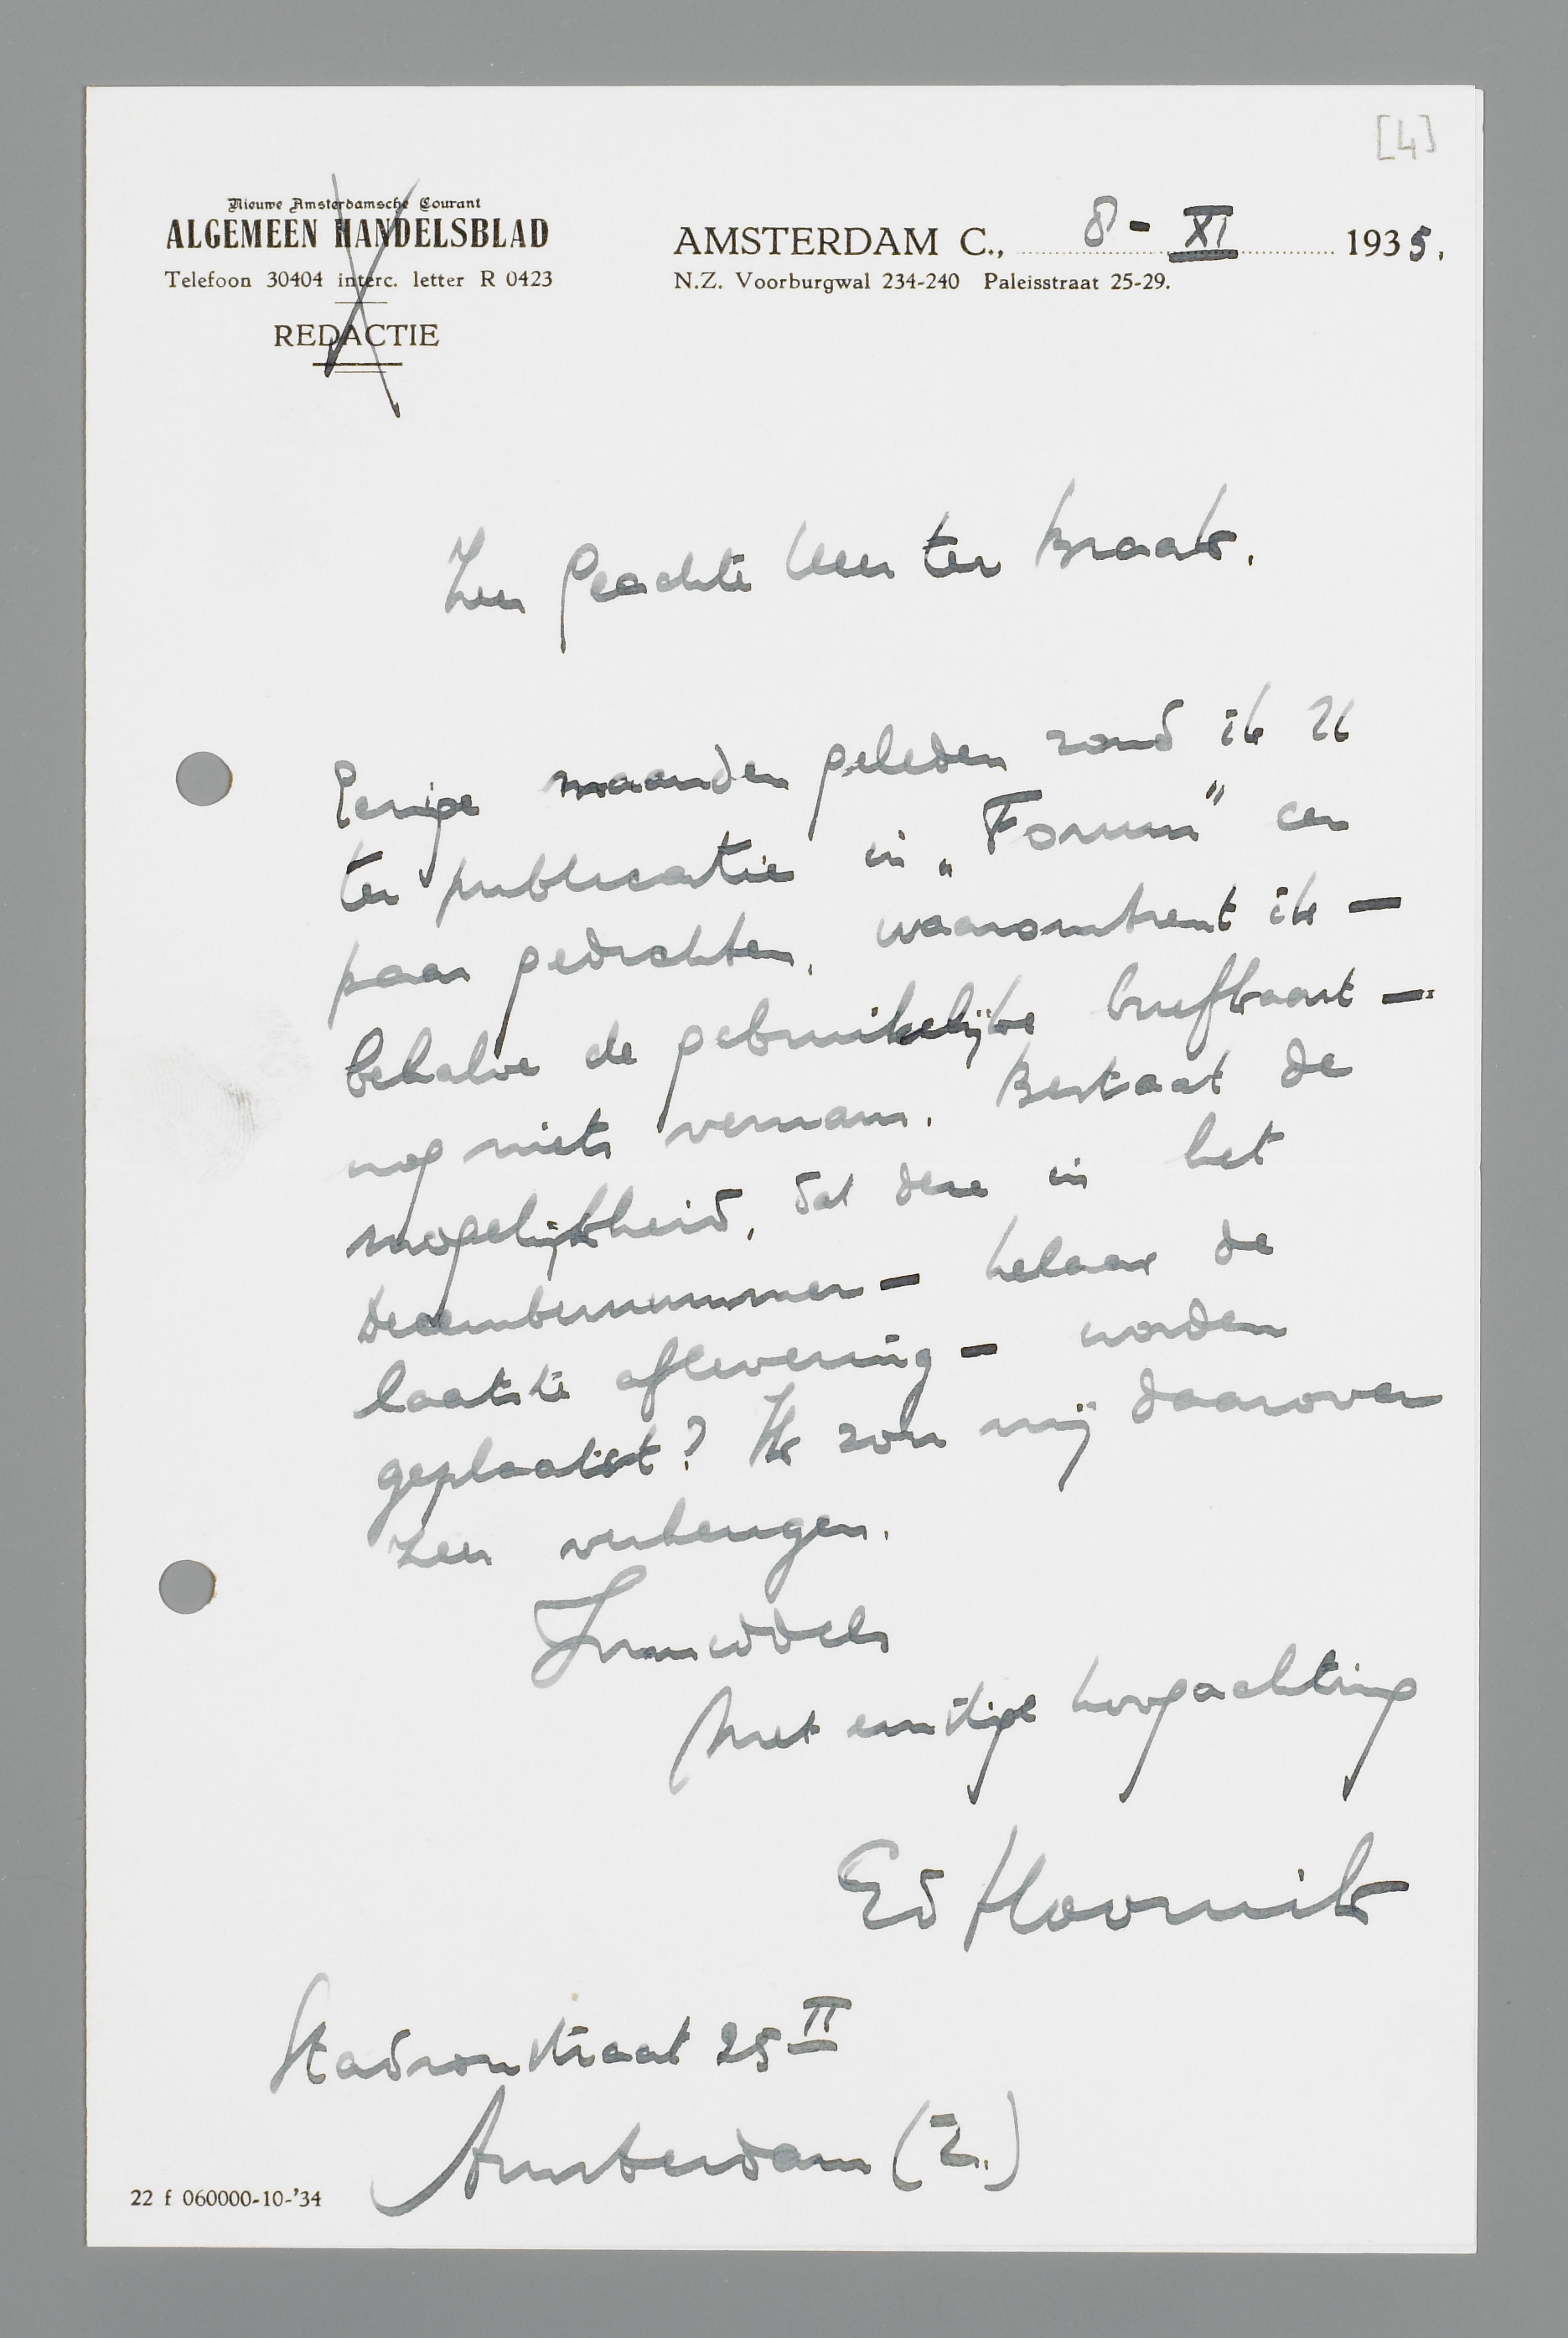 [4]
Nieuwe Amsterdamsche Courant
ALGEMEEN HANDELSBLAD
Telefoon 30404 interc. letter R 0423
REDACTIE
AMSTERDAM C., 8 - XI 1935.
N.Z. Voorburgwal 234-240 Paleisstraat 25-29.
Zeer geachte Heer ter Braak.
Eenige maanden geleden zond ik U
ter publicatie in „Forum" een
paar gedichten, waaromtrent ik —
behalve de gebruikelijke briefkaart —
nog niets vernam. Bestaat de
mogelijkheid, dat deze in het
Decembernummer — helaas de
laatste aflevering — worden
geplaatst? Ik zou mij daarover
zeer verheugen.
Inmiddels
met ernstige hoogachting
Ed Hoornik
Stadionstraat 25 II
Amsterdam (Z.)
22 f 060000-10-'34